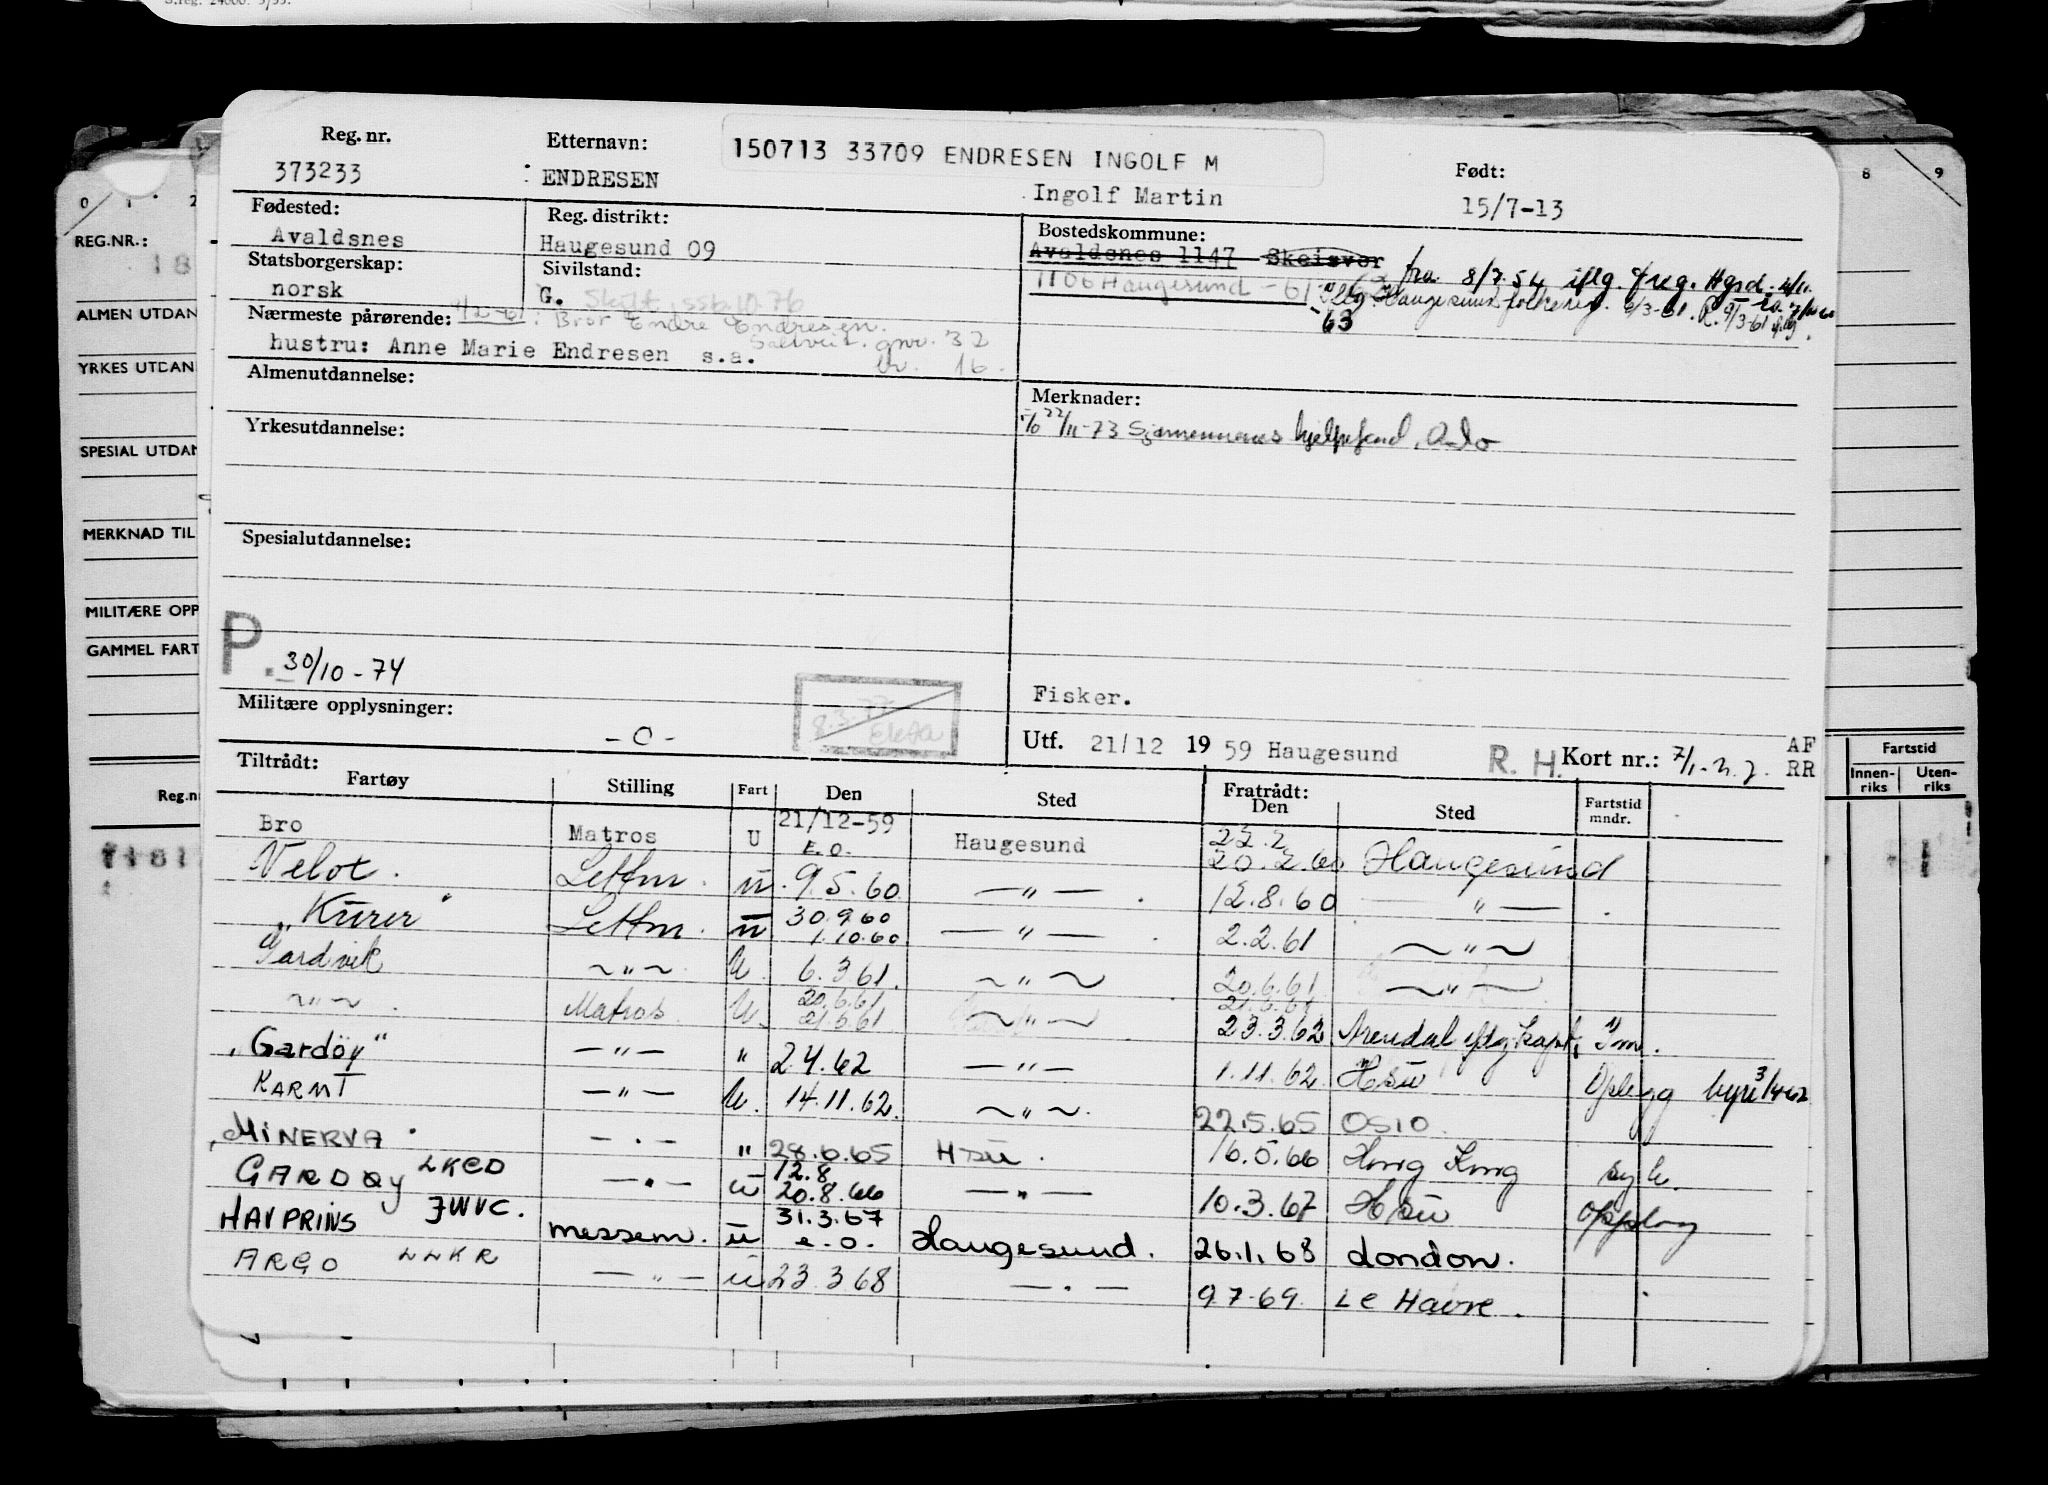 S.reg. 24000. 3/55.
Reg. nr. Etternavn: 150713 33709 ENDRESEN INGOLF M Født:
373233 : ENDRESEN Ingolf Martin 15/7-13
Fødested: Reg. distrikt: Bostedskommune:
Avaldsnes Haugesund 09 Avaldsnes 1147 Skeisvor fra 8/7.54 iflg. freg. Hgsd.
Statsborgerskap: Sivilstand: 1106 Haugesund - 61
norsk G. Skilt 10.76 63
Nærmeste pårørende: Bror Endre Endresen.
Saltveit. gnr. 32
hustru: Anne Marie Endresen s.a. br. 16.
Almenutdannelse: Merknader:
22/11-73 Sjømennenes hjelpefond, Oslo
Yrkesutdannelse:
Spesialutdannelse:
P. 30/10-74
Fisker.
Militære opplysninger: - O -
Utf. 21/12 1959 Haugesund R. H. Kort nr.: AF
RR
Tiltrådt: Fratrådt:
Fartøy Stilling Fart Den Sted Den Sted Fartstid mndr.
Bro Matros U 21/12-59 E.O. Haugesund 20.2.60 Haugesund
Velox. Lettm. ü. 9.5.60 —"— 12.8.60 —"—
"Kurer" Lettm. ü 30.9.60 1.10.60 —"— 2.2.61 ~"~
Gardvik ~"~ U. 6.3.61. ~"~ 20.6.61 ~"~
~"~ Matros U. 20.6.61 ~"~ 23.3.62 Arendal iflg. kapt.
"Gardöy" —"— " 2.4.62 —"— 1.11.62. Hsü Oplegg
KARMT —"— U. 14.11.62. ~"~ 22.5.65 OSLO
"MINERVA" —"— " 28.6.65 Hsü. 16.5.66 Hong Kong syk.
GARDØY LKCD —"— ü 12.8 20.8.66 —"— 10.3.67 Hsü Opplag
HAVPRINS JWVC. messem. ü 31.3.67 e.o. Haugesund. 26.1.68 London.
ARGO LLKR —"— ü 23.3.68 —"— 9.7-69. Le Havre.
0 1 2 8 9
REG.NR.:
18
ALMEN UTDAN
YRKES UTDAN
SPESIAL UTDAN
MERKNAD TIL
MILITÆRE OPP
GAMMEL FART
Reg.n
Fartstid
Innen-riks Uten-riks